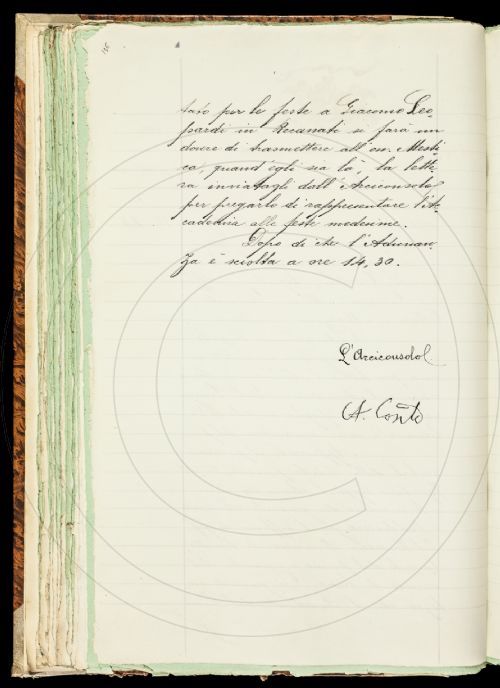 tato per le feste a Giacomo Leo-
pardi in Recanati si farà un
dovere di trasmettere all'on. Mesti
ca, quand'egli sia là, la lette-
ra inviatagli dall'Arciconsolo
per pregarlo di rappresentare l'Ac-
cademia alle feste medesime.
Dopo di che l'Adunan-
za è sciolta a ore 14,30.
L'Arciconsolo
A. Conti